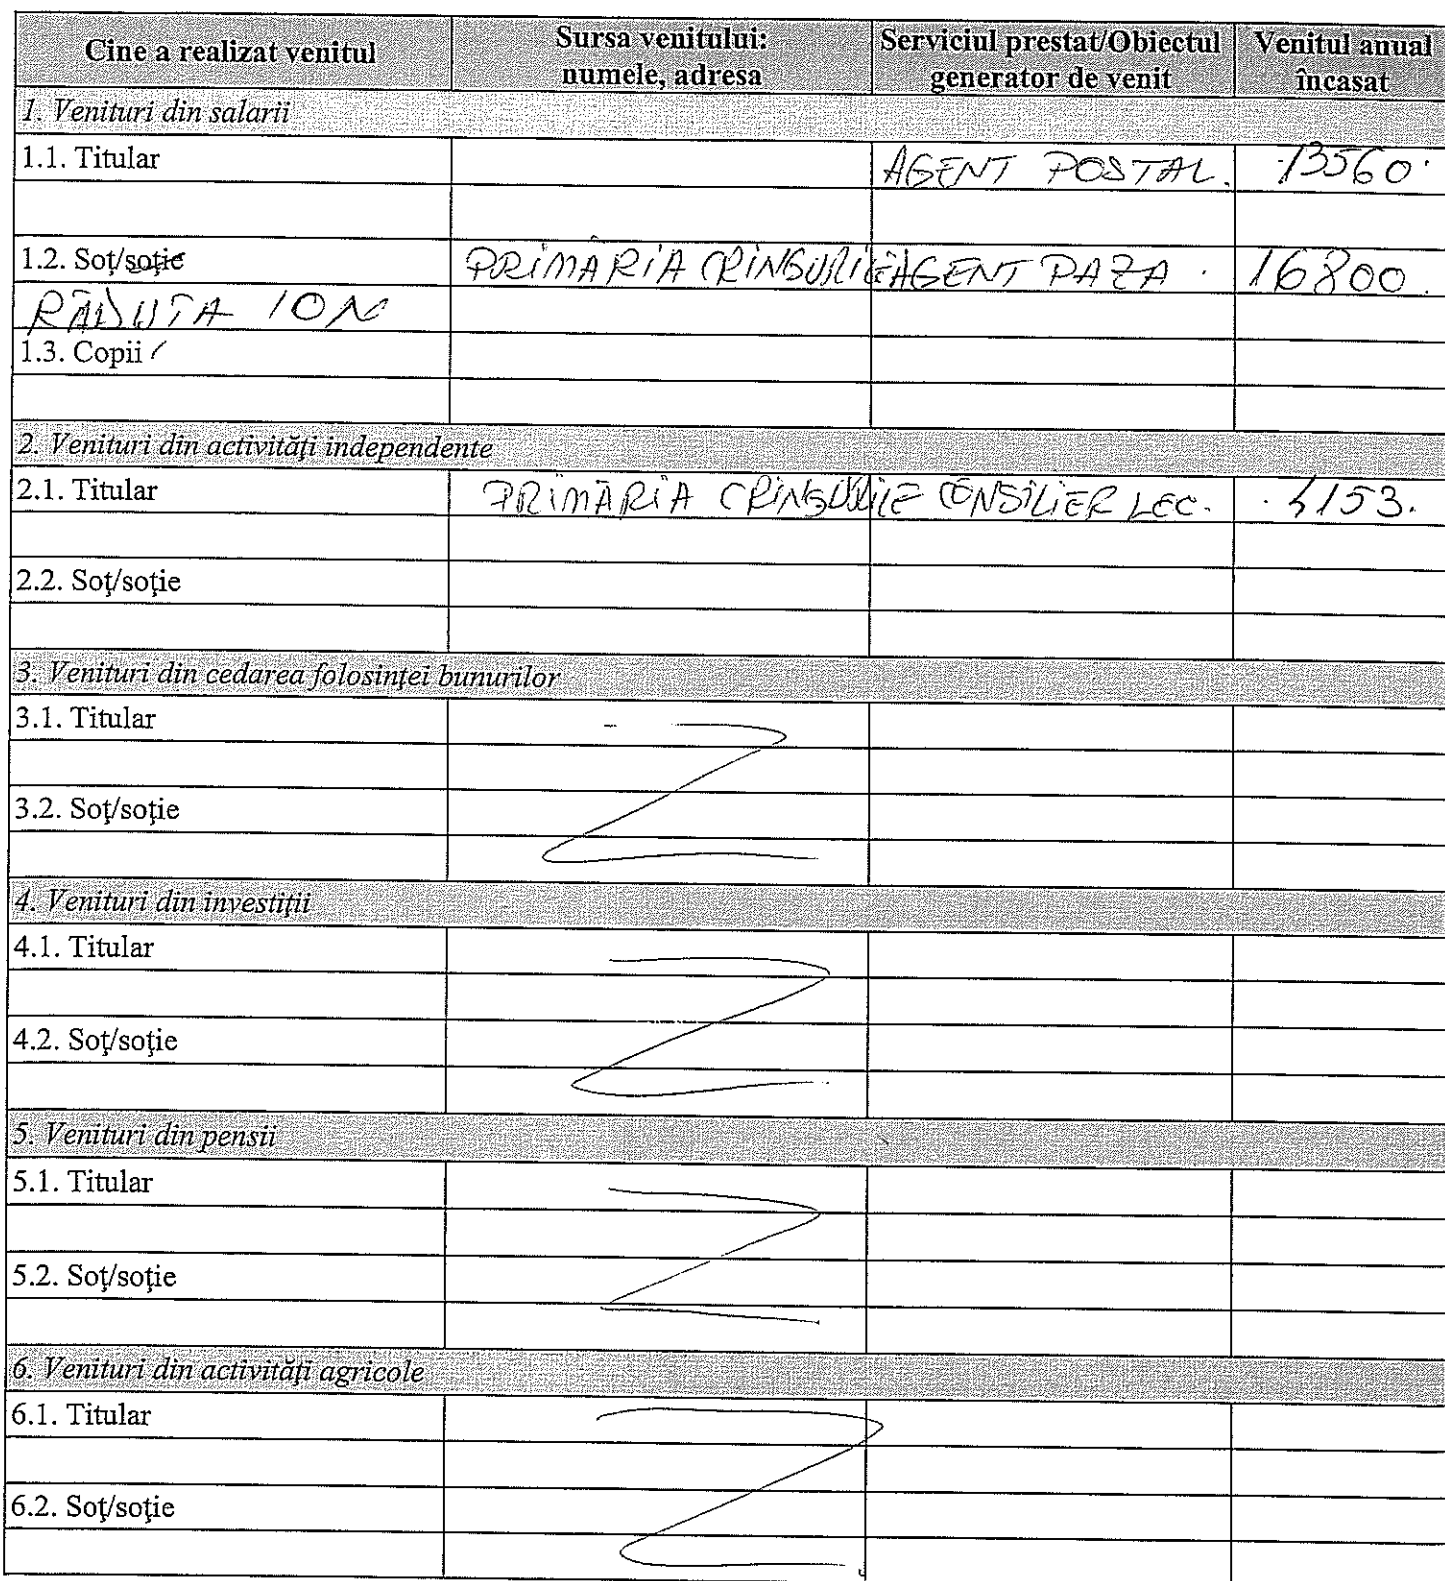 Cine a realizat venitul Sursa venitului: Serviciul prestat/Obiectul Venitul anual
numele, adresa generator de venit încasat
1. Venituri din salarii
1.1. Titular AGENT POSTAL. 13560
1.2. Soţ/soţie PRIMĂRIA CRINGURILE AGENT PAZA 16800.
RĂDUTA ION
1.3. Copii
2. Venituri din activităţi independente
2.1. Titular PRIMĂRIA CRINGURILE CONSILIER LEC. 4153.
2.2. Soţ/soţie
3. Venituri din cedarea folosinţei bunurilor
3.1. Titular
3.2. Soţ/soţie
4. Venituri din investiţii
4.1. Titular
4.2. Soţ/soţie
5. Venituri din pensii
5.1. Titular
5.2. Soţ/soţie
6. Venituri din activităţi agricole
6.1. Titular
6.2. Soţ/soţie